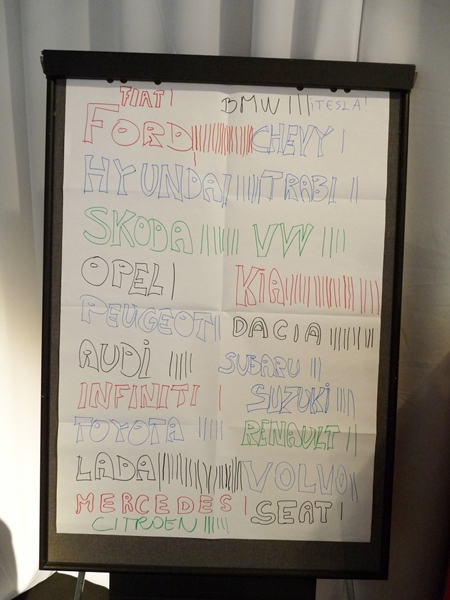 FIAT BMW TESLA
FORD CHEVY
HYUNDAI TRABI
SKODA VW
OPEL KIA
PEUGEOT DACIA
AUDI SUBARU
INFINITI SUZUKI
TOYOTA RENAULT
LADA VOLVO
MERCEDES SEAT
CITROEN